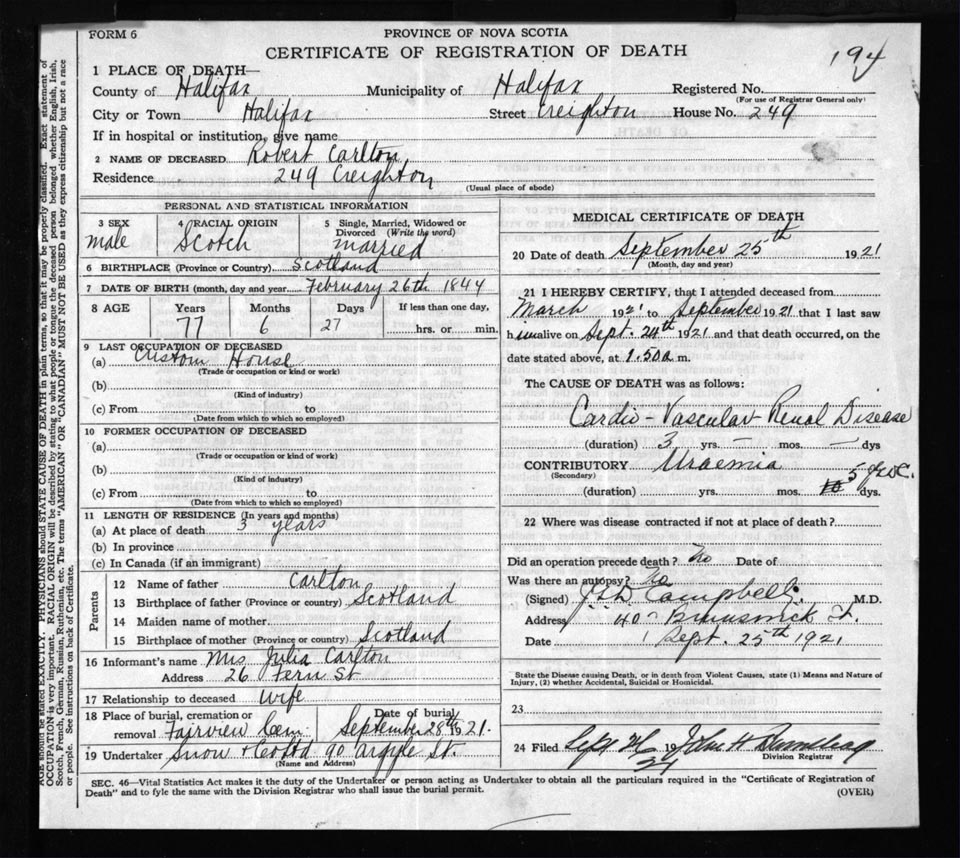 FORM 6
PROVINCE OF NOVA SCOTIA
CERTIFICATE OF REGISTRATION OF DEATH
194
1 PLACE OF DEATH—
County of Halifax Municipality of Halifax Registered No.
(For use of Registrar General only)
City or Town Halifax Street Creighton House No. 249
If in hospital or institution, give name
2 NAME OF DECEASED Robert Carlton
Residence 249 Creighton
(Usual place of abode)
PERSONAL AND STATISTICAL INFORMATION
3 SEX male
4 RACIAL ORIGIN Scotch
5 Single, Married, Widowed or Divorced (Write the word) married
6 BIRTHPLACE (Province or Country) Scotland
7 DATE OF BIRTH (month, day and year) February 26th 1844
8 AGE Years 77 Months 6 Days 27 If less than one day, hrs. or min.
9 LAST OCCUPATION OF DECEASED
(a) Custom House
(Trade or occupation or kind or work)
(b)
(Kind of industry)
(c) From to
(Date from which to which so employed)
10 FORMER OCCUPATION OF DECEASED
(a)
(Trade or occupation or kind of work)
(b)
(Kind of industry)
(c) From to
(Date from which to which so employed)
11 LENGTH OF RESIDENCE (In years and months)
(a) At place of death 3 years
(b) In province
(c) In Canada (if an immigrant)
Parents
12 Name of father Carlton
13 Birthplace of father (Province or country) Scotland
14 Maiden name of mother
15 Birthplace of mother (Province or country) Scotland
16 Informant's name Mrs Julia Carlton
Address 26 Fern St
17 Relationship to deceased Wife
18 Place of burial, cremation or removal Fairview Cem Date of burial September 28th 1921.
19 Undertaker Snow & Co Ltd 90 Argyle St.
(Name and Address)
MEDICAL CERTIFICATE OF DEATH
20 Date of death September 25th 1921
(Month, day and year)
21 I HEREBY CERTIFY, that I attended deceased from
March 1921 to September 1921 that I last saw
him alive on Sept. 24th 1921 and that death occurred, on the
date stated above, at 1.50a m.
The CAUSE OF DEATH was as follows:
Cardio-Vascular Renal Disease
(duration) 3 yrs. — mos. — dys
CONTRIBUTORY Uraemia
(Secondary)
(duration) yrs. mos. 10 5 dys.
22 Where was disease contracted if not at place of death?
Did an operation precede death? No Date of
Was there an autopsy? No
(Signed) Campbell. M.D.
Address 40 Brunswick St.
Date Sept. 25th 1921
State the Disease causing Death, or in death from Violent Causes, state (1) Means and Nature of
Injury, (2) whether Accidental, Suicidal or Homicidal.
23
24 Filed Sept 19 John H
21
Division Registrar
SEC. 46—Vital Statistics Act makes it the duty of the Undertaker or person acting as Undertaker to obtain all the particulars required in the "Certificate of Registration of
Death" and to fyle the same with the Division Registrar who shall issue the burial permit.
(OVER)
AGE should be stated EXACTLY. PHYSICIANS should STATE CAUSE OF DEATH in plain terms, so that it may be properly classified. Exact statement of
OCCUPATION is very important. RACIAL ORIGIN will be described by stating to what people or tongue the deceased person belonged whether English, Irish,
Scotch, French, German, Russian, Ruthenian, etc. The terms "AMERICAN" OR "CANADIAN" MUST NOT BE USED as they express citizenship but not a race
or people. See instructions on back of Certificate.